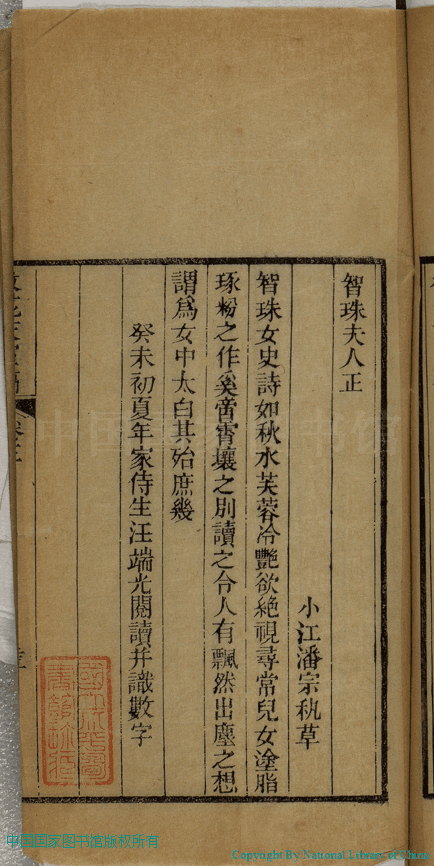 智珠夫人正
小江潘宗秇草
智珠女史詩如秋水芙蓉冷艷欲絶視尋常兒女塗脂
琢粉之作奚啻霄壤之別讀之令人有飄然出塵之想
謂爲女中太白其殆庶幾
癸未初夏年家侍生汪端光閱讀并識數字
中国国家图书馆版权所有
Copyright By National Library of China